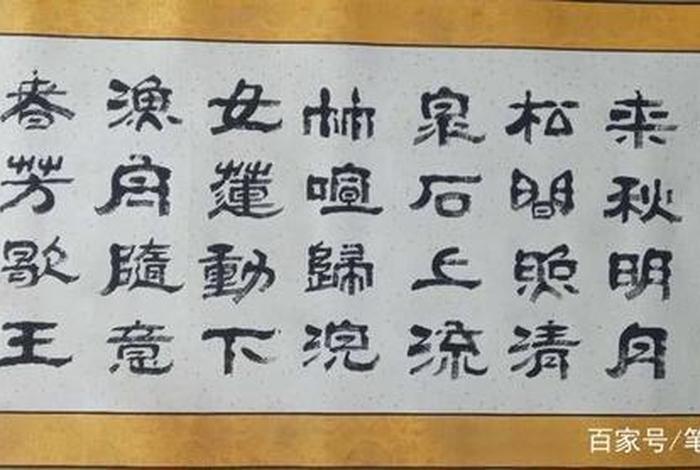 来秋明月
松間照清
泉石上流
竹喧歸浣
女蓮動下
漁舟隨意
春芳歇王
百家号/笔